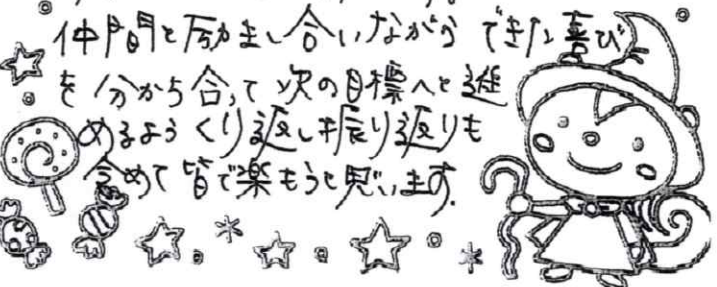 仲間と励まし合いながら できた喜び
を分かち合って次の目標へと進
めるよう くり返し振り返りも
含めて皆で楽もうと思います。